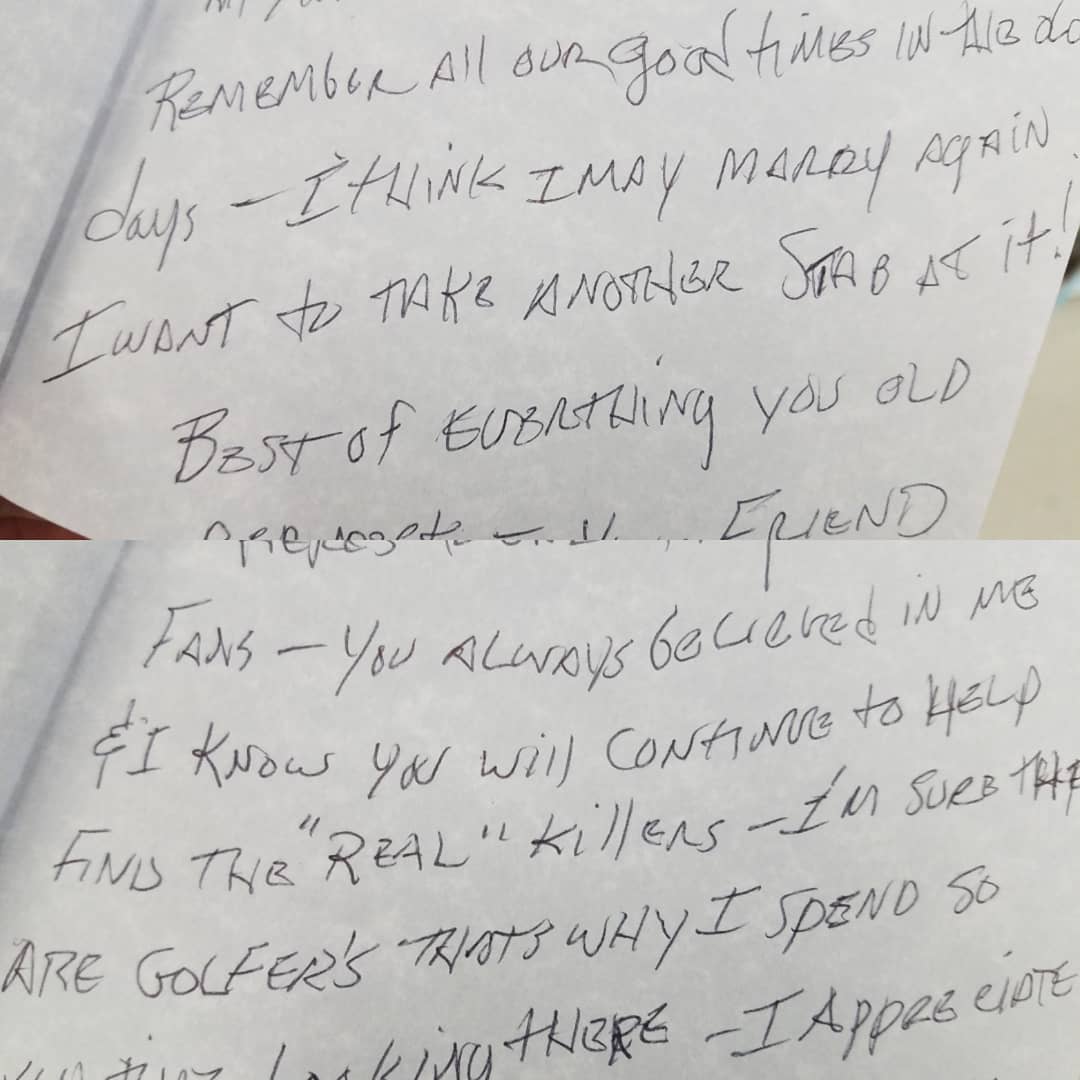 REMEMBER All OUR good times IN THE
days – I tHiNK I MAY MARRY AgAiN
I WANT to TAKE ANOTHER STAB AT it!
BEST of EVERYTHiNg YOU OLD
FRIEND
FANS – YOU ALWAYS beLieved iN ME
& I KNOW YOU will CONTINUE to HELP
FIND THE "REAL" KillERS – I'M SURE THEY
ARE GOLFER'S THATS WHY I SPEND SO
looking THERE – I APPRECIATE